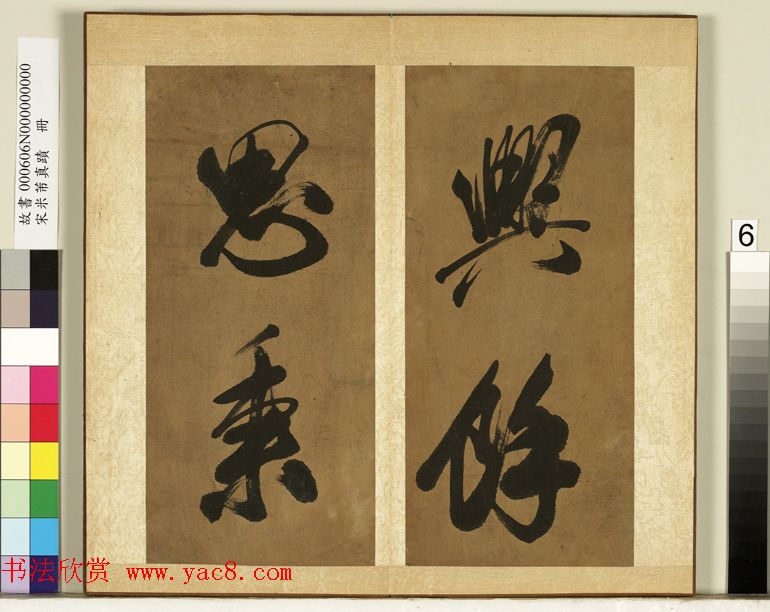 故書 000606N000000000
宋米芾真蹟 冊
興餘
思秉
6
书法欣赏 www.yac8.com